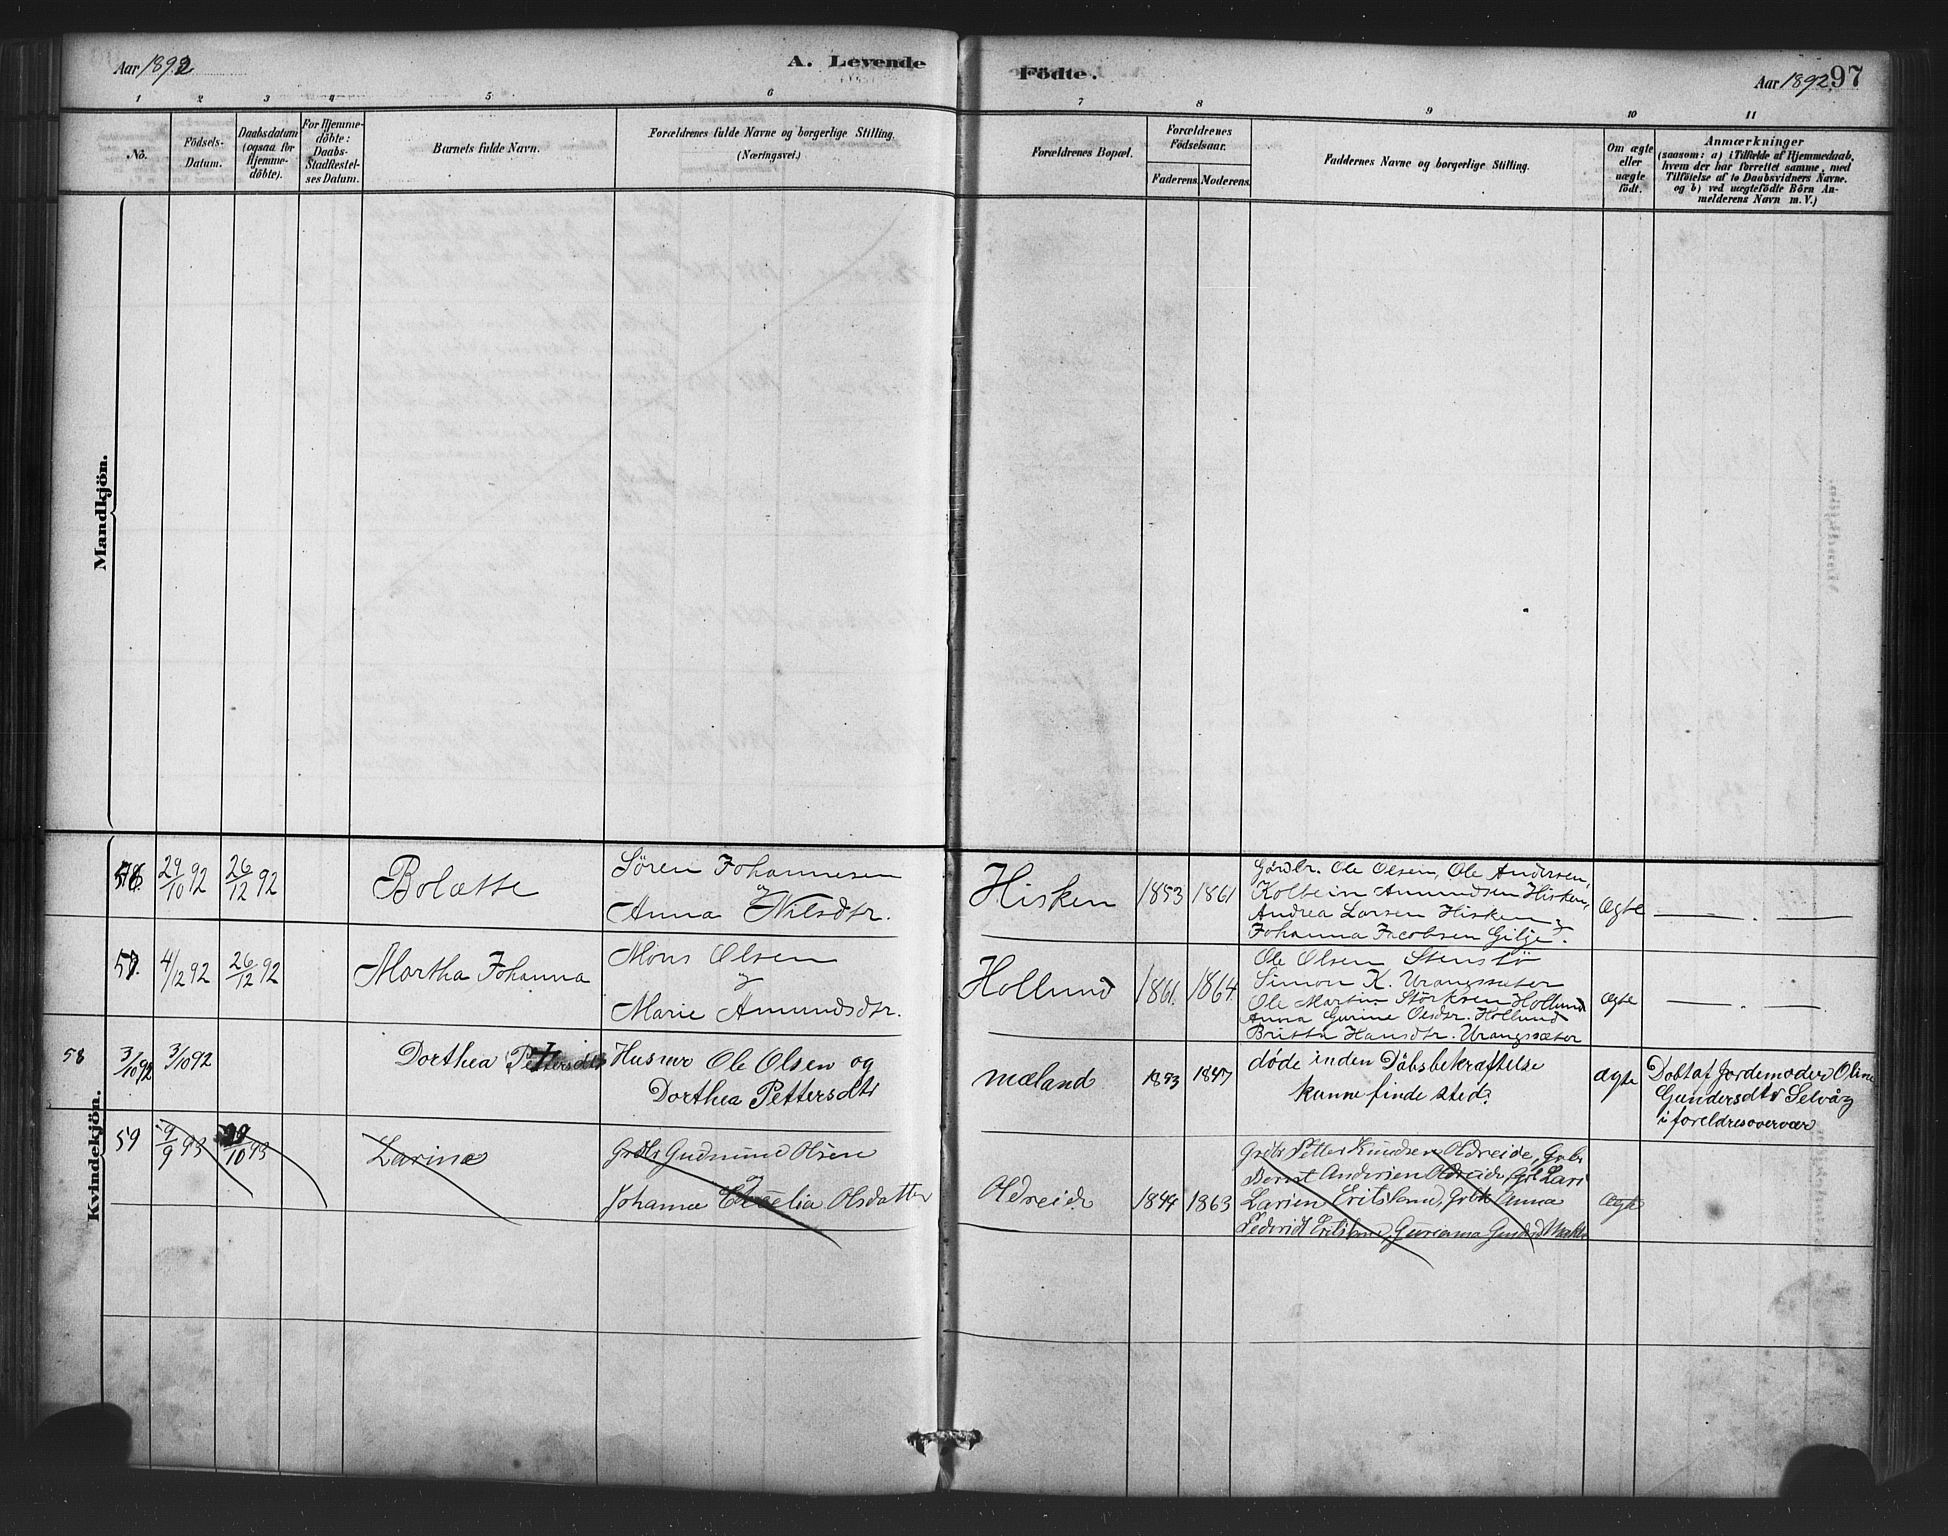 Aar 1892
A. Levende
Födte.
Aar 1892.
97
1 2 3 4 5 6 7 8 9 10 11
No.
Födsels-
Datum.
Daabsdatum
(ogsaa for
Hjemme-
döbte).
For Hjemme-
döbte:
Daabs-
Stadfestel-
ses Datum.
Barnets fulde Navn.
Forældrenes fulde Navne og borgerlige Stilling.
(Næringsvei.)
Forældrenes Bopæl.
Forældrenes
Födselsaar.
Faderens. Moderens.
Faddernes Navne og borgerlige Stilling.
Om ægte
eller
uægte
födt.
Anmærkninger
(saasom: a) i Tilfælde af Hjemmedaab,
hvem der har forrettet samme, med
Tilföielse af to Daabsvidners Navne.
og b) ved uægtefödte Börn An-
melderens Navn m. V.)
Mandkjön.
Kvindekjön.
29/10 92
26/12 92
Bolætte
Sören Johannesen
og
Anna Nilsdtr.
Hisken
1853
1861
Gårdbr. Ole Olsen, Ole Andersen,
Koltein Amundsen Hisken,
Andrea Larsen Hisken,
Johanna Jacobsen Gilje.
ægte
57.
4/12 92
26/12 92
Martha Johanna
Mons Olsen
og
Marie Amundsdtr.
Hollund
1861.
1864
Ole Olsen Stensbö
Simon K. Urangsæter
Ole Martin Störksen Hollund
Anna Gurine Olsdtr. Hollund
Britta Hansdtr. Urangsæter
ægte
58
3/10 92
3/10 92
Dorthea Pettersdtr
Husmr Ole Olsen og
Dorthea Pettersdtr
mæland
1853
1847
døde inden Döbsbekræftelse
kunne finde sted.
ægte
Döbt af Jordemoder Oline
Gundersdtr Selvåg
i foreldresoverver
59
9/9 93
/10 93
Larine
Grdbr Gudmund Olsen
og
Johanne Cecelia Olsdatter
Oldreide
1844
1863
Grdbr Petter Knudsen Oldreide, Grbr
Bernt Andersen Oldreide, Grk Lari
Larsen Eritsland, Grbk Anna
Eritsland, Guriama
ægte